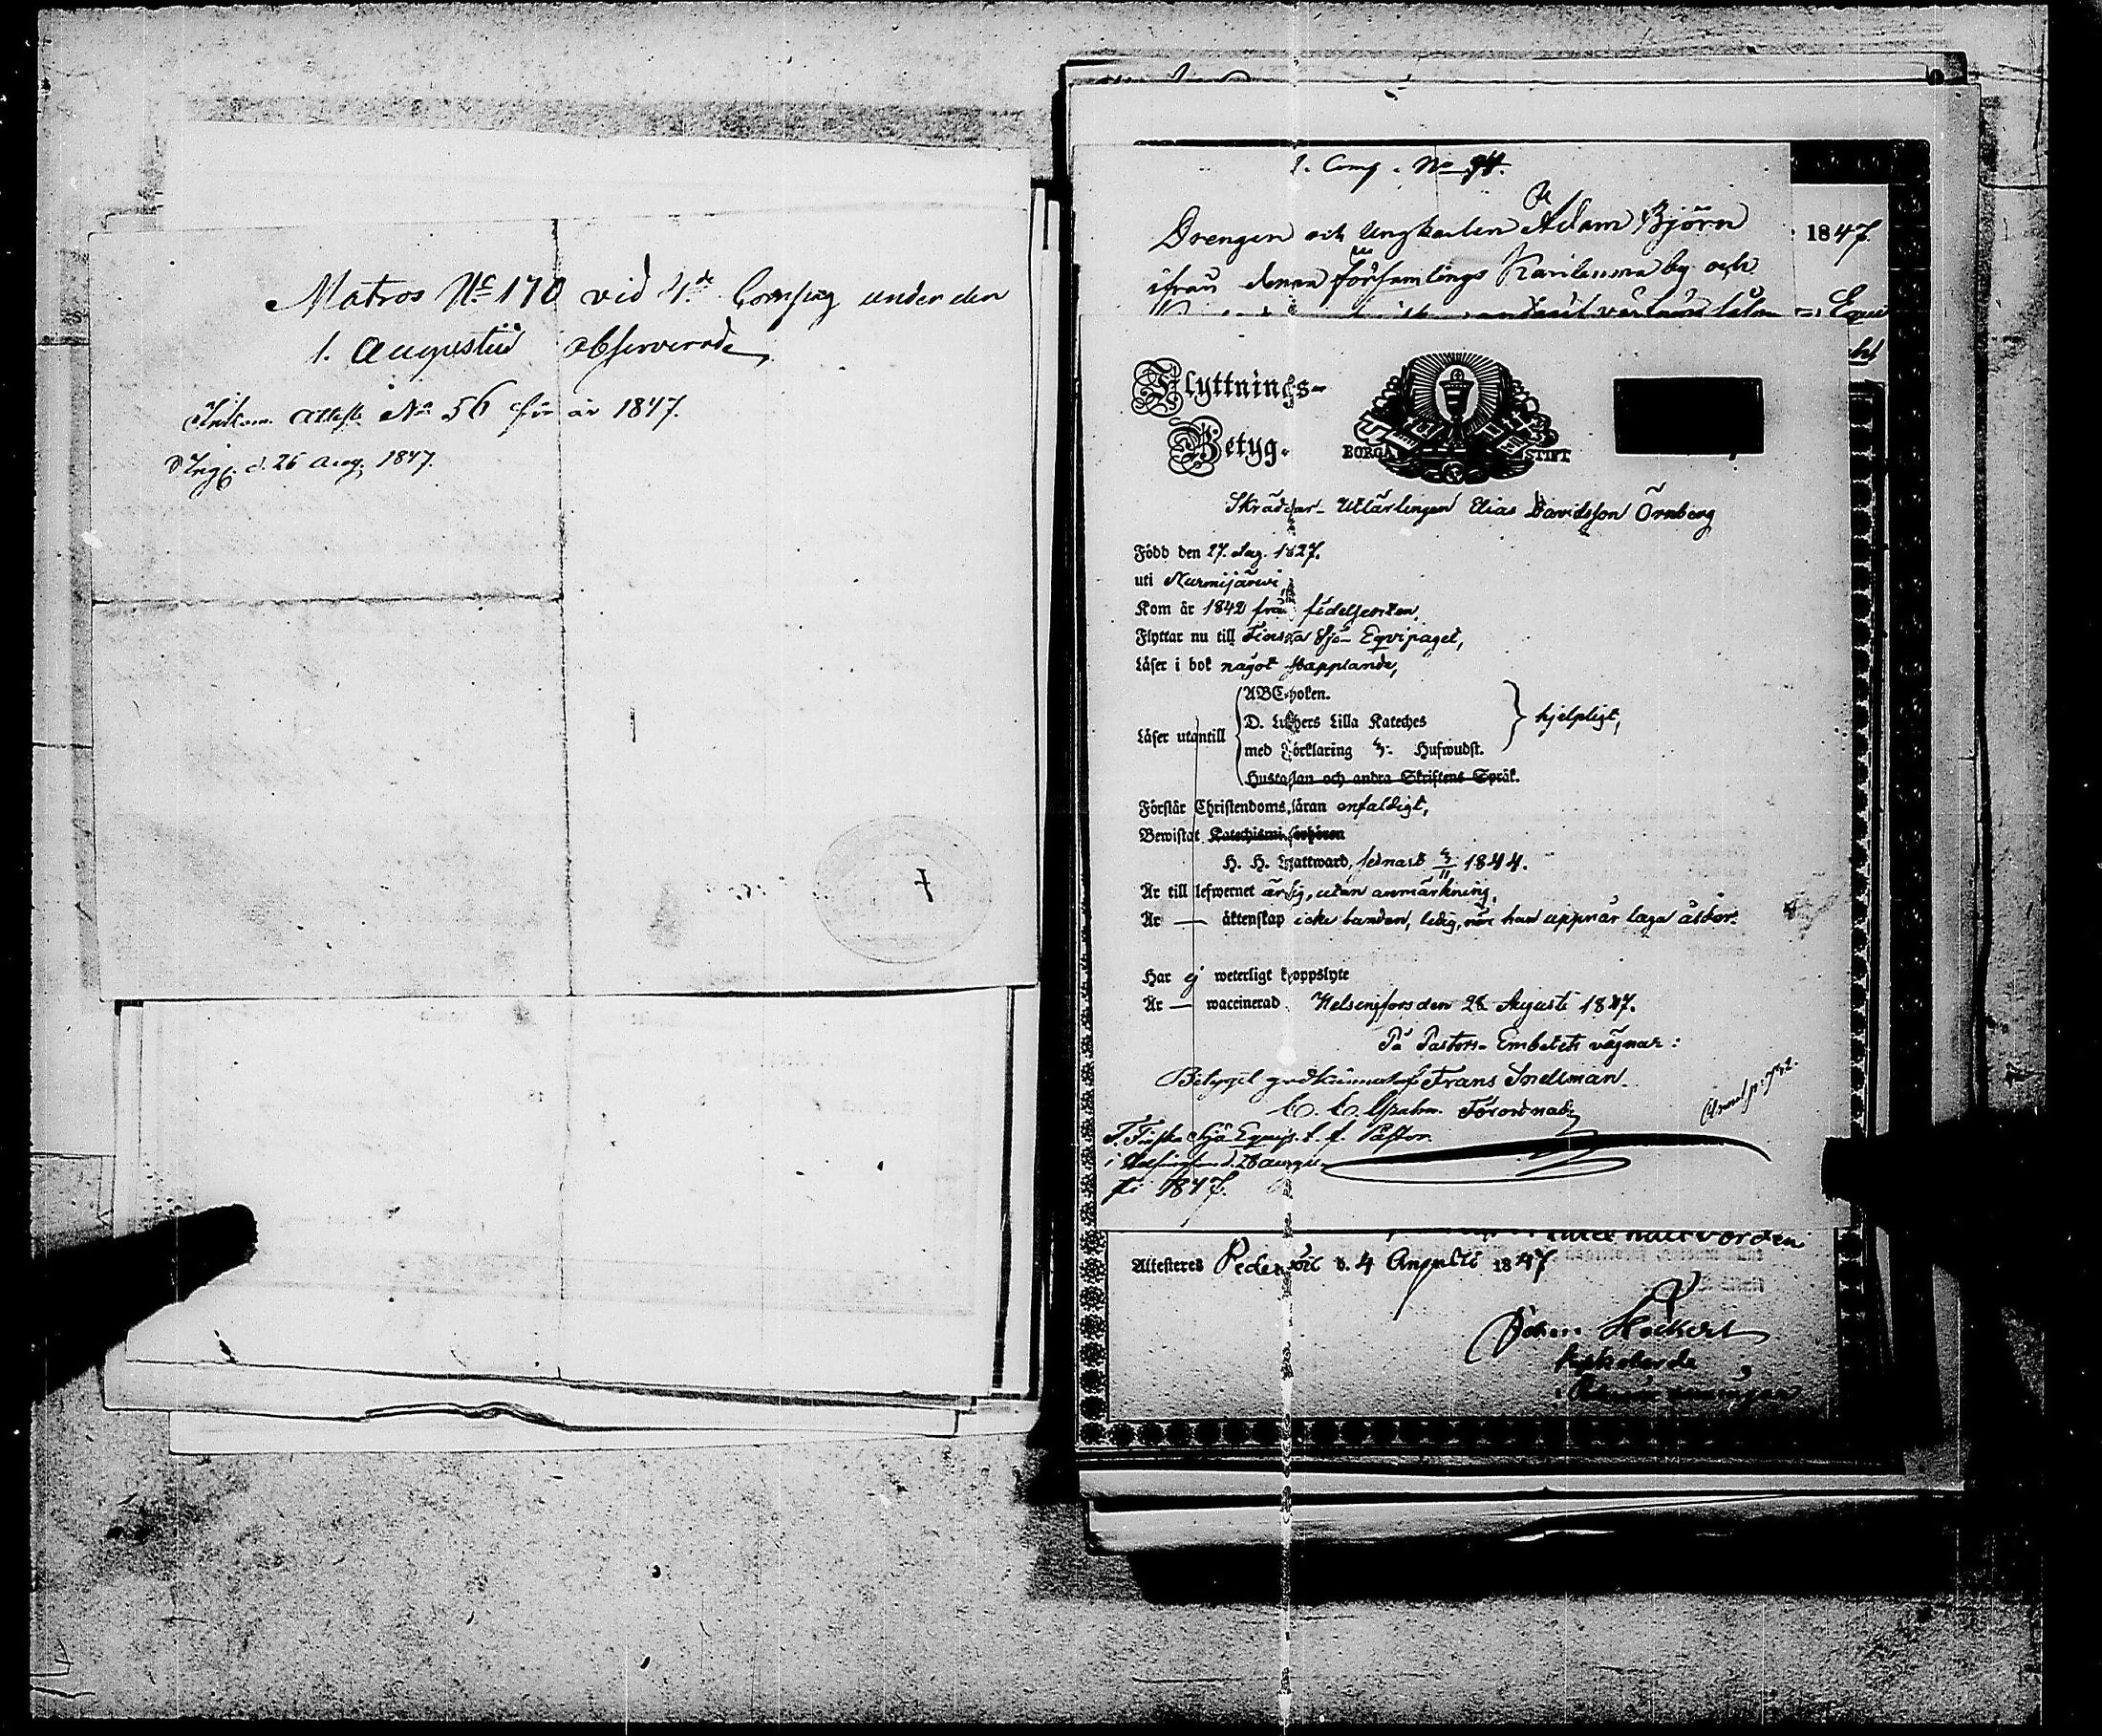 Matros No 170 vid 4de Compag under den
1. Augusti observerade
Inkom. Attest No 56 för år 1847.
d. 26 Aug. 1847.
1. Comp. No 94.
Drengen och Ungkarlen Adam Björn
ifrån denna församlings by och
1847.
Flyttnings-
Betyg.
BORGÅ STIFT
Skräddar-Utlärlingen Elias Davidsson Örnberg
Född den 27. Aug. 1827.
uti Nurmijärwi
Kom år 1842 från födelseorten,
Flyttar nu till Finska Sjö-Eqvipaget,
Läser i bok något stapplande,
Läser utantill
ABC-boken.
D. Luthers Lilla Kateches
med Förklaring Hufwudst.
Hustaflan och andra Skriftens Språk.
hjelpligt,
Förstår Christendoms läran enfaldigt,
Bewistat Katechismi-förhören
H. H. Nattward, sednast 1844.
Är till lefwernet ärlig, utan anmärkning,
Är — äktenskap icke bunden, ledig, när han uppnår laga ålder.
Har ej weterligt koppslyte
Är — waccinerad. Helsingfors den 28 Augusti 1847.
På Pastors-Embetets vägnar:
Betyget godkännes af Frans Snellman.
Förordnad
T. Finska Sjö Equip. t. f. Pastor
i Helsingfors d. 28 Augu-
sti 1847.
Attesteres Pedersöre d. 4 Augusti 1847